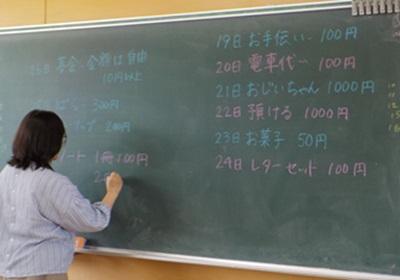 25日 募金…金額は自由
10円以上
300円
200円
ノート 1冊100円
2
19日 お手伝い… 100円
20日 電車代… 100円
21日 おじいちゃん 1000円
22日 預ける 1000円
23日 お菓子 50円
24日 レターセット 100円